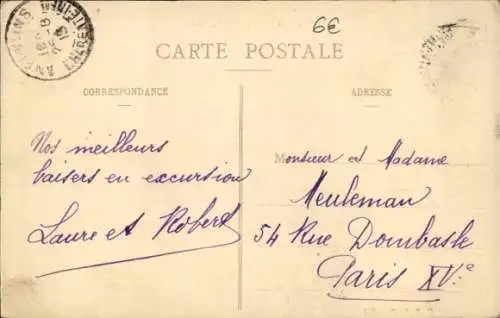 6€
CARTE POSTALE
CORRESPONDANCE
ADRESSE
Nos meilleurs
baisers en excursion
Laure et Robert
Monsieur et Madame
Meuleman
54 Rue Dombasle
Paris XVe